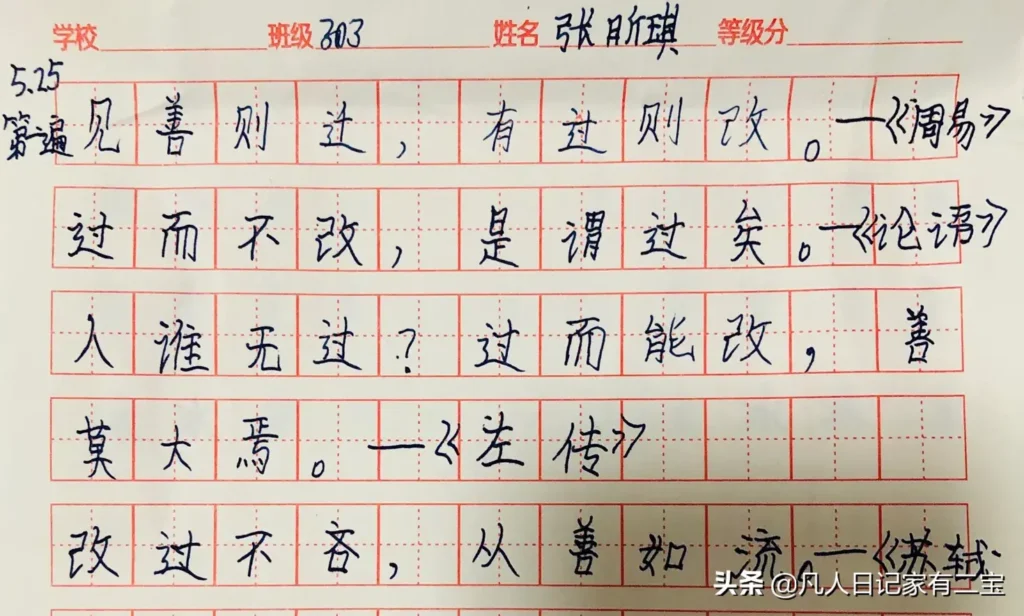 学校 班级 303 姓名 张昕琪 等级分
5.25
第一遍
见善则迁，有过则改。—《周易》
过而不改，是谓过矣。—《论语》
人谁无过？过而能改，善
莫大焉。—《左传》
改过不吝，从善如流。—《苏轼
头条 @凡人日记家有二宝